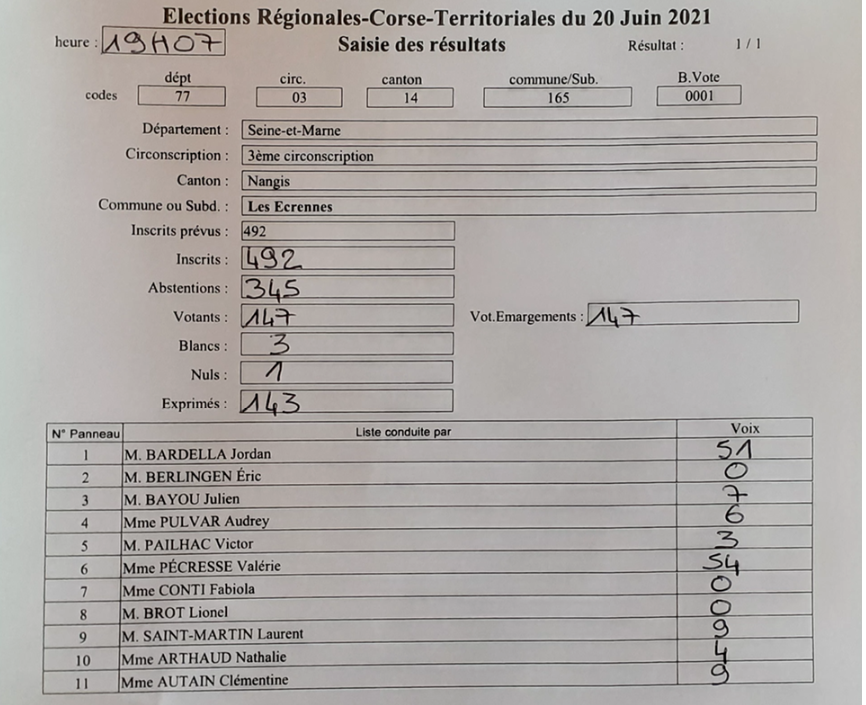 Elections Régionales-Corse-Territoriales du 20 Juin 2021
heure : 19H07 Saisie des résultats Résultat : 1 / 1
dépt circ. canton commune/Sub. B.Vote
codes 77 03 14 165 0001
Département : Seine-et-Marne
Circonscription : 3ème circonscription
Canton : Nangis
Commune ou Subd. : Les Ecrennes
Inscrits prévus : 492
Inscrits : 492
Abstentions : 345
Votants : 147 Vot.Emargements : 147
Blancs : 3
Nuls : 1
Exprimés : 143
N° Panneau Liste conduite par Voix
1 M. BARDELLA Jordan 51
2 M. BERLINGEN Éric 0
3 M. BAYOU Julien 7
4 Mme PULVAR Audrey 6
5 M. PAILHAC Victor 3
6 Mme PÉCRESSE Valérie 54
7 Mme CONTI Fabiola 0
8 M. BROT Lionel 0
9 M. SAINT-MARTIN Laurent 9
10 Mme ARTHAUD Nathalie 4
11 Mme AUTAIN Clémentine 9